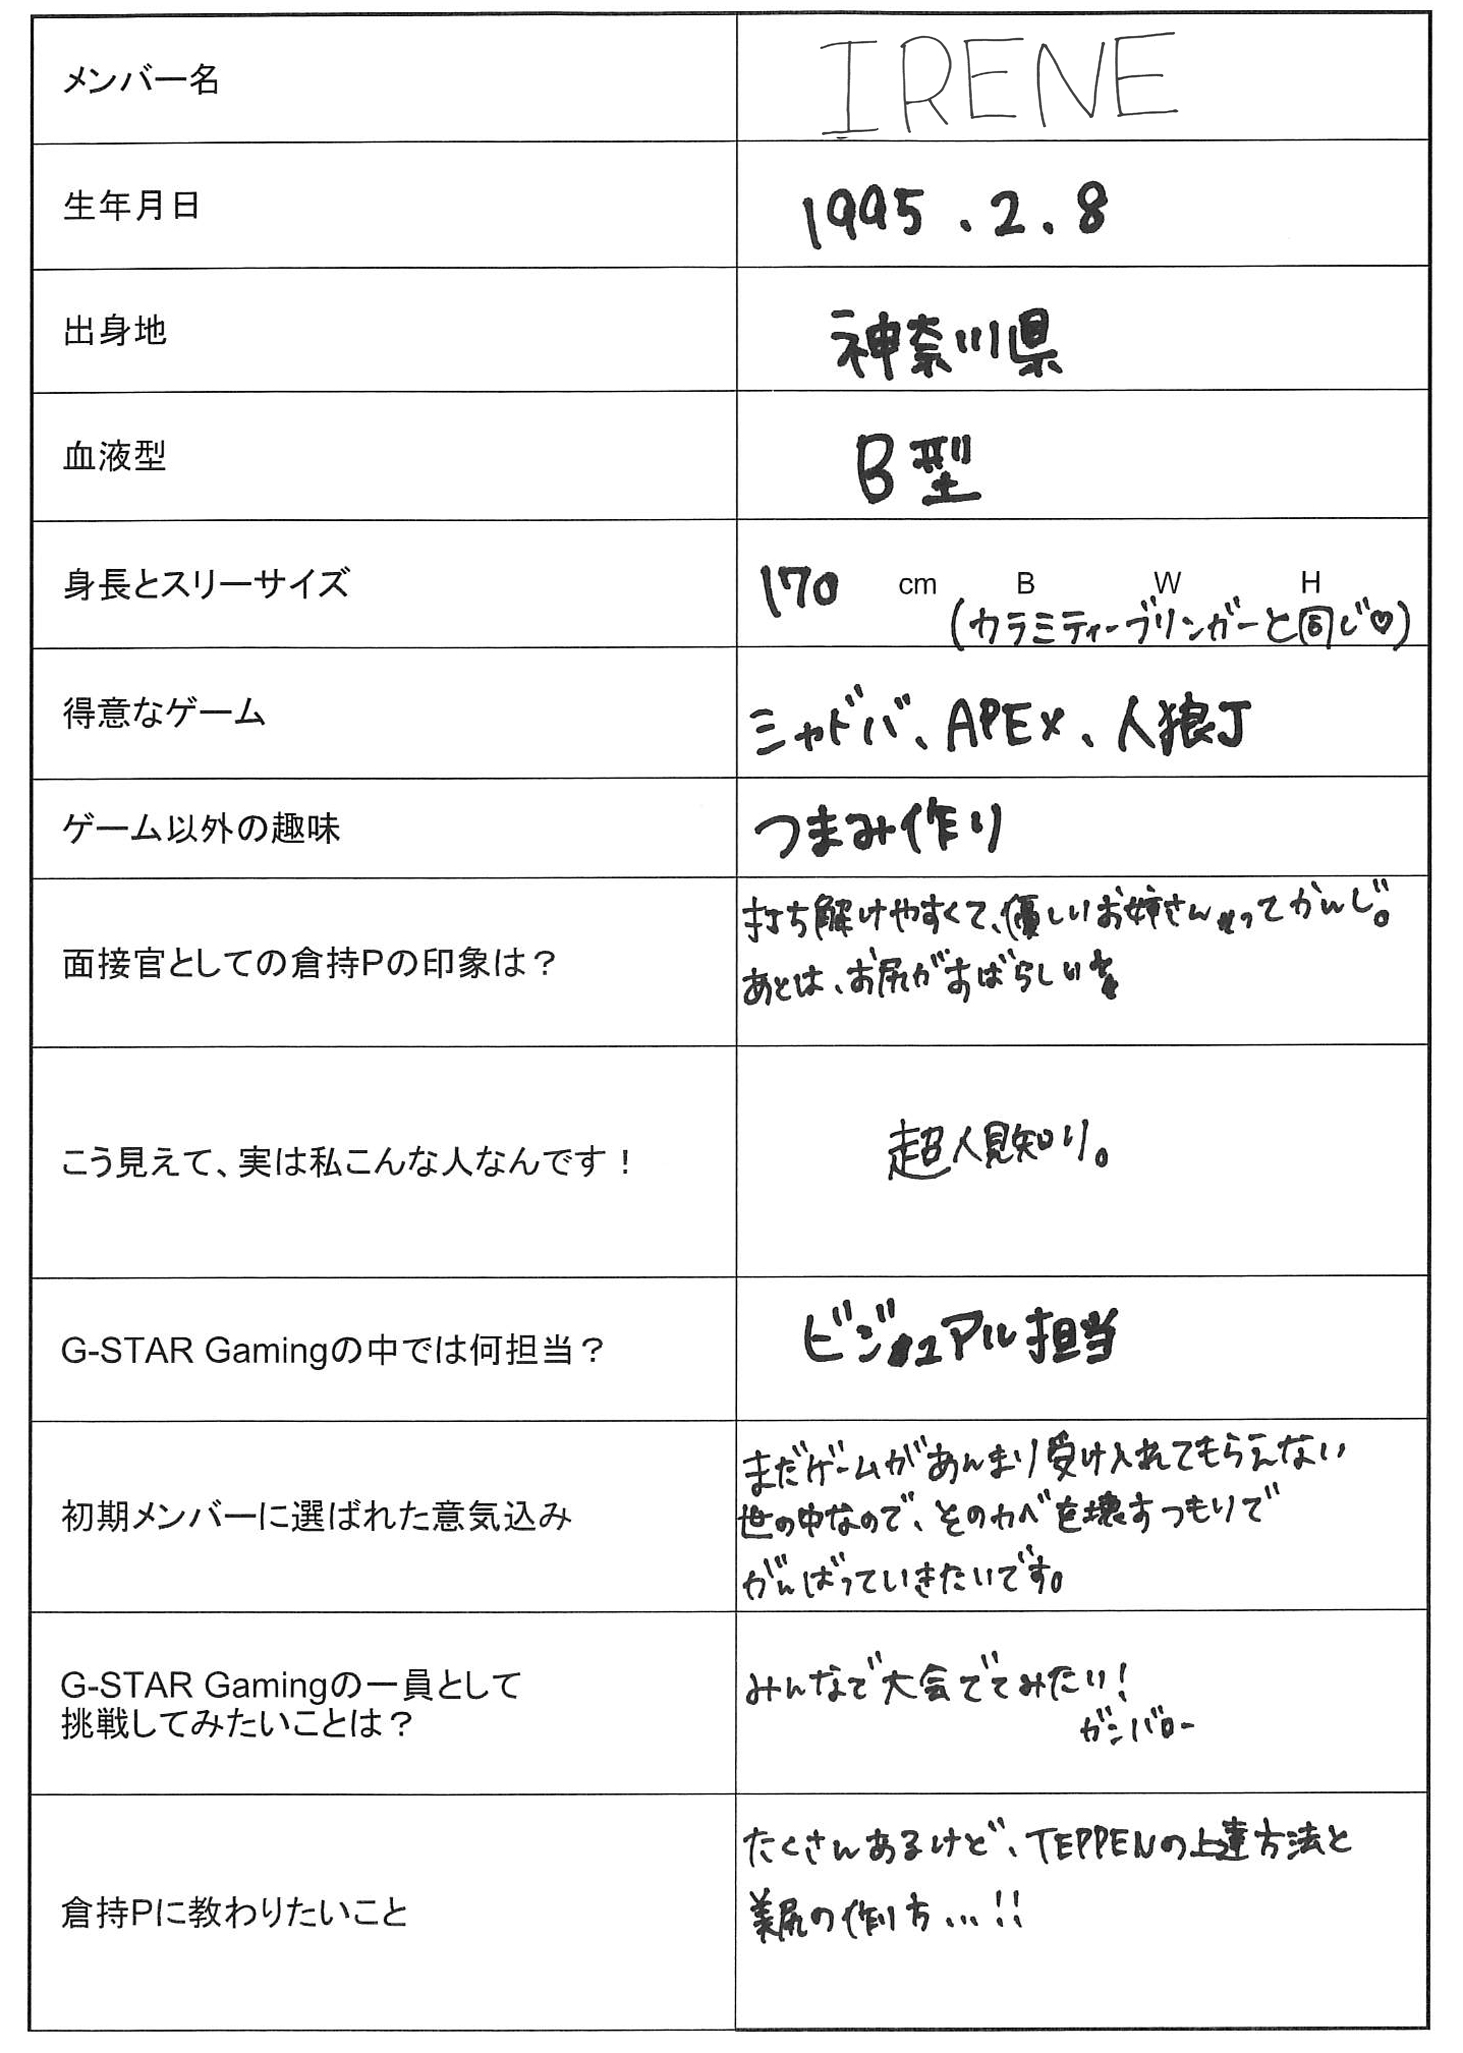 メンバー名
IRENE
生年月日
1995.2.8
出身地
神奈川県
血液型
B型
身長とスリーサイズ
170 cm B W H
(カラミティーブリンガーと同じ♡)
得意なゲーム
シャドバ、APEX、人狼J
ゲーム以外の趣味
つまみ作り
面接官としての倉持Pの印象は？
打ち解けやすくて、優しいお姉さんってかんじ。
あとは、お尻がすばらしい
こう見えて、実は私こんな人なんです！
超人見知り。
G-STAR Gamingの中では何担当？
ビジュアル担当
初期メンバーに選ばれた意気込み
まだゲームがあんまり受け入れてもらえない
世の中なので、そのカベを壊すつもりで
がんばっていきたいです。
G-STAR Gamingの一員として
挑戦してみたいことは？
みんなで大会でてみたい！
ガンバロー
倉持Pに教わりたいこと
たくさんあるけど、TEPPENの上達方法と
美尻の作り方...!!